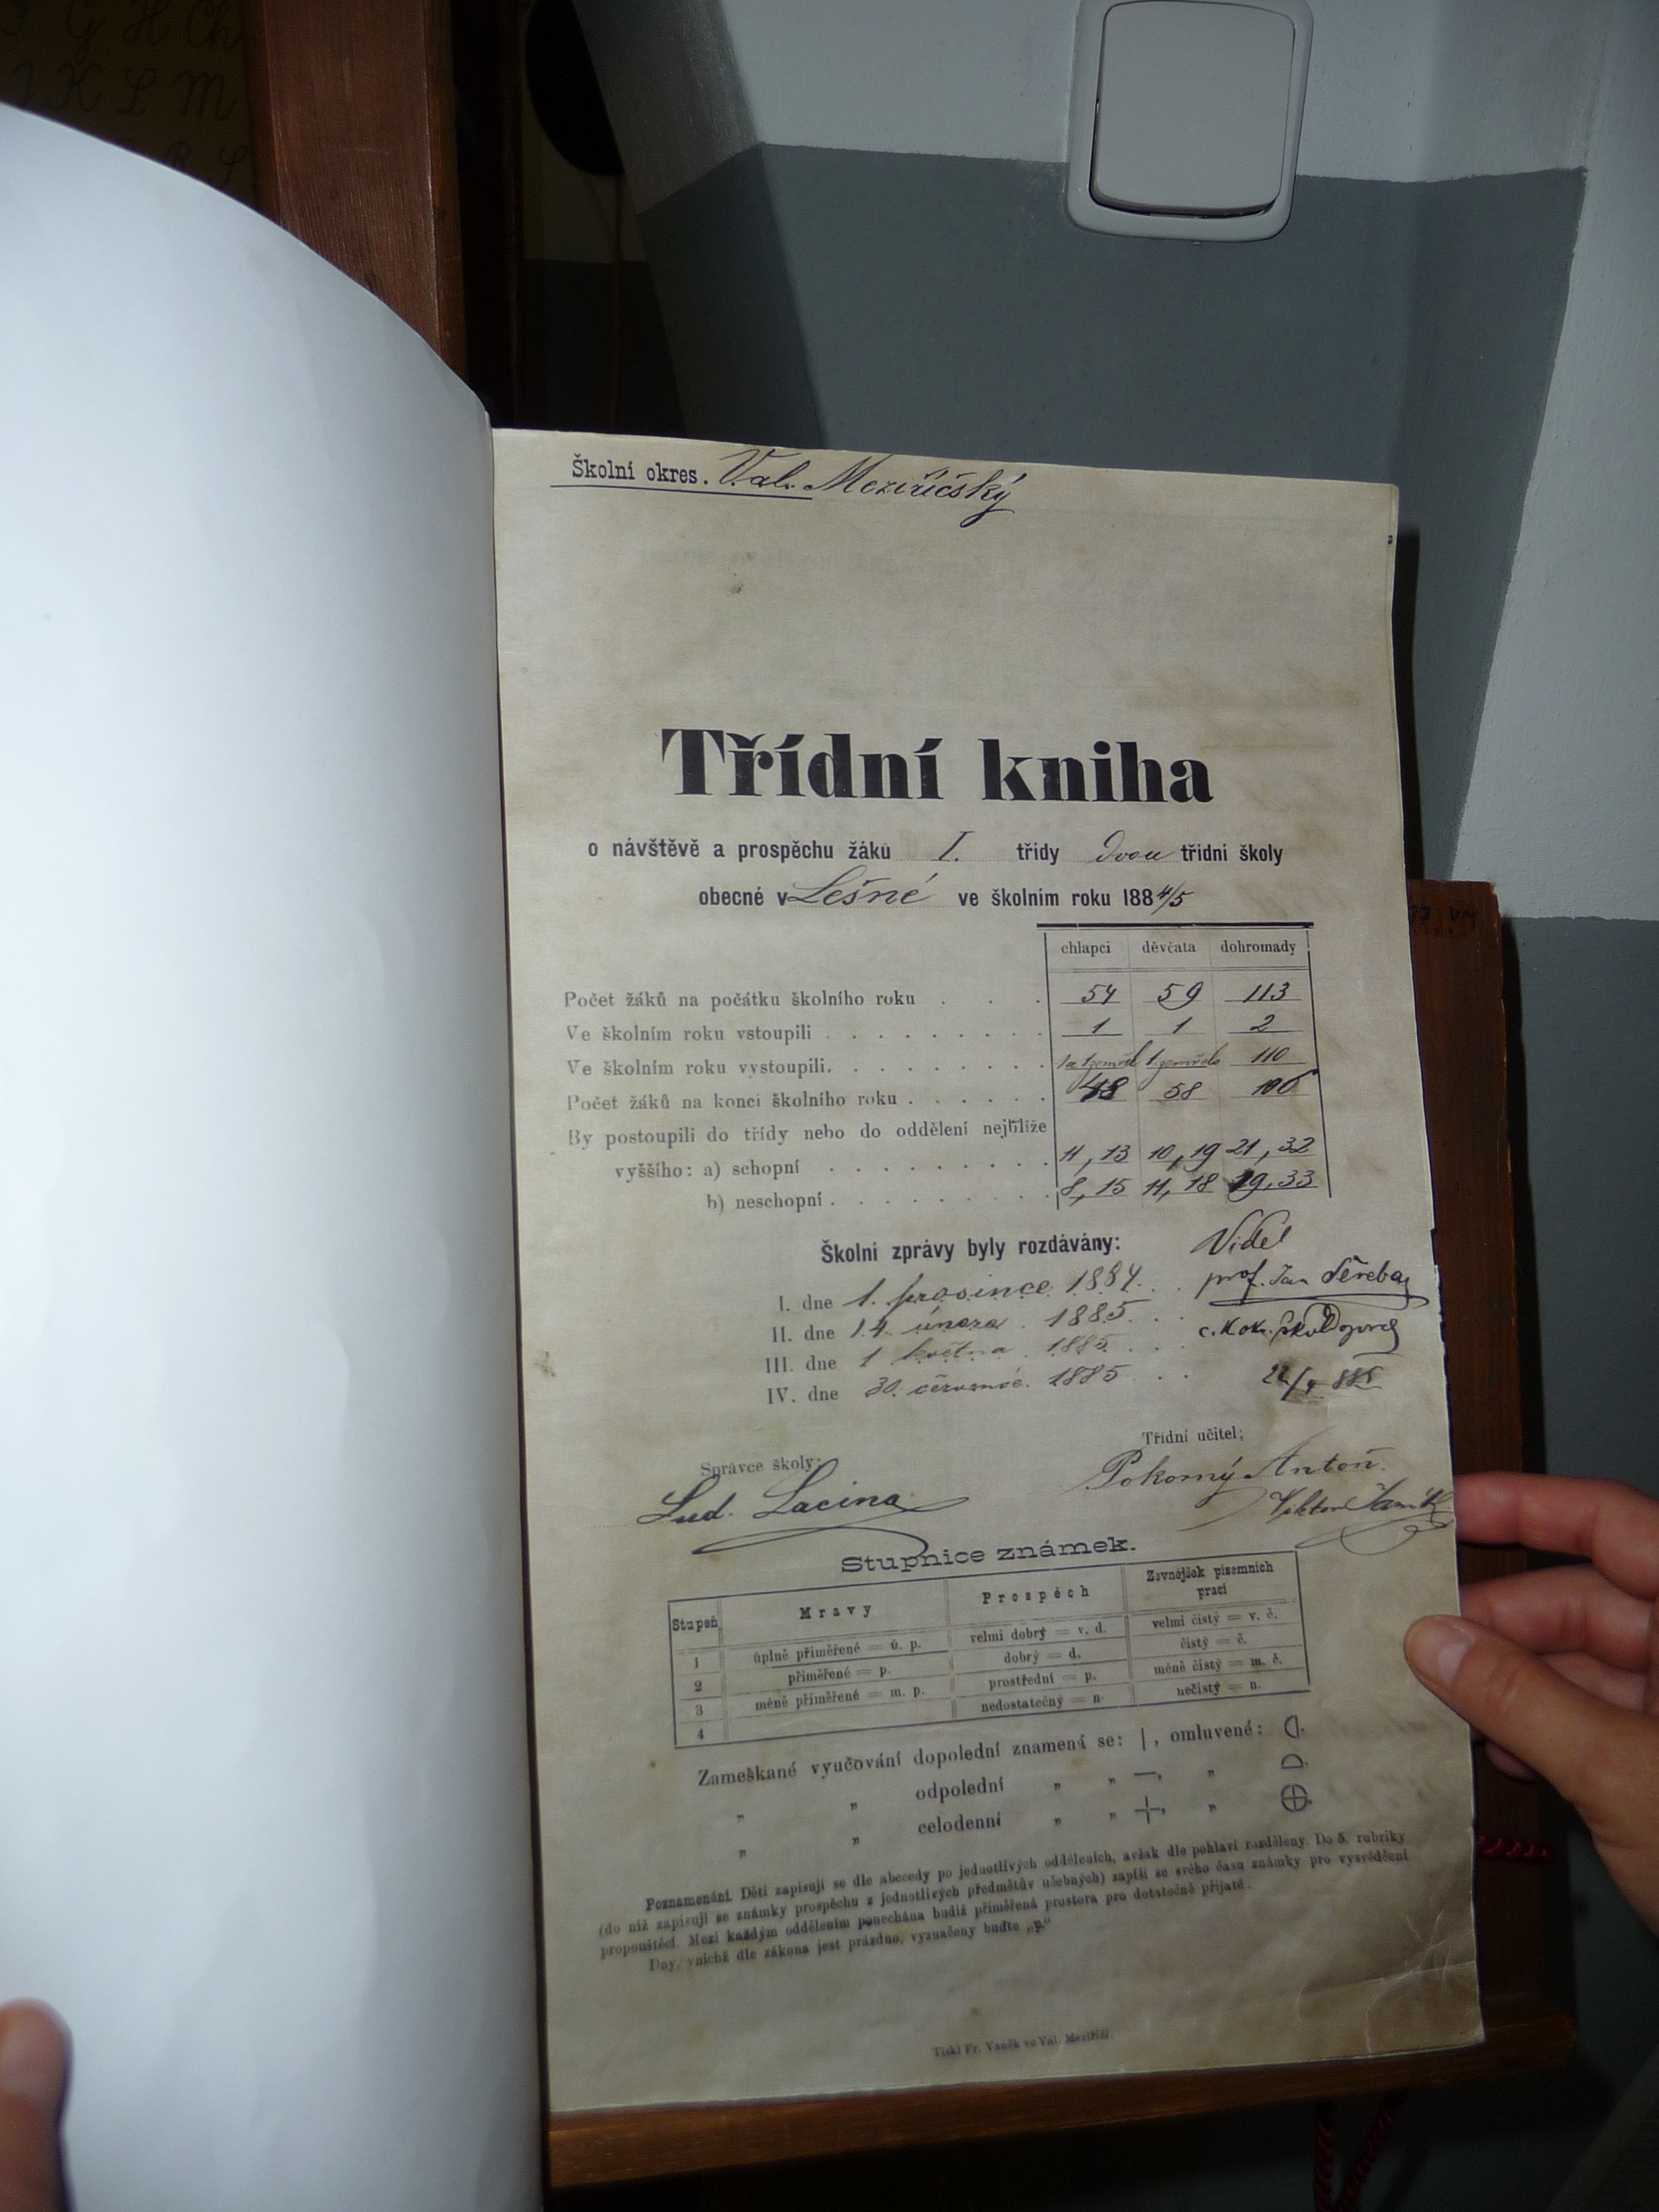 G H Ch
K L M
Školní okres. Val. Meziříčský
Třídní kniha
o návštěvě a prospěchu žáků I. třídy dvou třídní školy
obecné v Lešné ve školním roku 1884/5
chlapci děvčata dohromady
Počet žáků na počátku školního roku . . . 54 59 113
Ve školním roku vstoupili . . . . . . . . 1 1 2
Ve školním roku vystoupili. . . . . . . . 1 a 1 zemřel 1 zemřela 110
Počet žáků na konci školního roku . . . . . 48 58 106
By postoupili do třídy nebo do oddělení nejblíže
vyššího: a) schopni . . . . . . . . 11, 13 10, 19 21, 32
b) neschopni . . . . . . . . 8, 15 11, 18 19, 33
Školní zprávy byly rozdávány: Viděl
I. dne 1. prosince 1884. . . prof. Jan
II. dne 14. února. 1885. . . c. k. okr.
III. dne 1 května 1885. . . .
IV. dne 30. července. 1885 . . 885
Třídní učitel;
Správce školy: Pokorný Anton.
Lud. Lacina Viktor
Stupnice známek.
Stupeň Mravy Prospěch Zevnějšek písemních prací
1 úplně přiměřené = ú. p. velmi dobrý = v. d. velmi čistý = v. č.
2 přiměřené = p. dobrý = d. čistý = č.
3 méně přiměřené = m. p. prostřední = p. méně čistý = m. č.
4 nedostatečný = n. nečistý = n.
Zameškané vyučování dopolední znamená se: |, omluvené:
" " odpolední " " —, "
" " celodenní " " +, "
Poznamenání. Děti zapisují se dle abecedy po jednotlivých odděleních, avšak dle pohlaví rozděleny. Do 5. rubriky
(do níž zapisují se známky prospěchu z jednotlivých předmětův učebných) zapíší se svého času známky pro vysvědčení
propouštěcí. Mezi každým oddělením ponechána budiž přiměřená prostora pro dotatečně přijaté.
Dny, vnichž dle zákona jest prázdno, vyznačeny buďte „p.“
Tiskl Fr. Vaněk ve Val. Meziříčí.